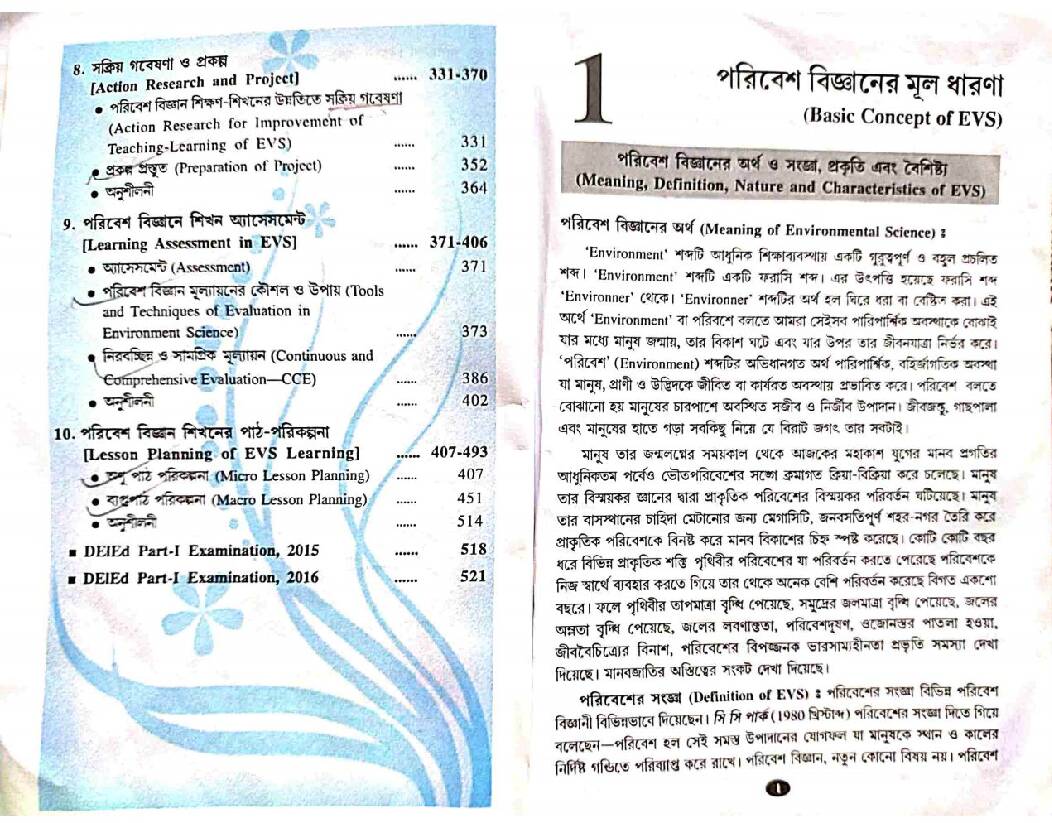 8. সক্রিয় গবেষণা ও প্রকল্প
[Action Research and Project] ...... 331-370
• পরিবেশ বিজ্ঞান শিক্ষণ-শিখনের উন্নতিতে সক্রিয় গবেষণা
(Action Research for Improvement of
Teaching-Learning of EVS) ...... 331
• প্রকল্প প্রস্তুত (Preparation of Project) ...... 352
• অনুশীলনী ...... 364
9. পরিবেশ বিজ্ঞানে শিখন অ্যাসেসমেন্ট
[Learning Assessment in EVS] ...... 371-406
• অ্যাসেসমেন্ট (Assessment) ...... 371
• পরিবেশ বিজ্ঞান মূল্যায়নের কৌশল ও উপায় (Tools
and Techniques of Evaluation in
Environment Science) ...... 373
• নিরবচ্ছিন্ন ও সামগ্রিক মূল্যায়ন (Continuous and
Comprehensive Evaluation—CCE) ...... 386
• অনুশীলনী ...... 402
10. পরিবেশ বিজ্ঞান শিখনের পাঠ-পরিকল্পনা
[Lesson Planning of EVS Learning] ...... 407-493
• অণু পাঠ পরিকল্পনা (Micro Lesson Planning) ...... 407
• ব্যাপ্তপাঠ পরিকল্পনা (Macro Lesson Planning) ...... 451
• অনুশীলনী ...... 514
■ DElEd Part-I Examination, 2015 ...... 518
■ DElEd Part-I Examination, 2016 ...... 521
1
পরিবেশ বিজ্ঞানের মূল ধারণা
(Basic Concept of EVS)
পরিবেশ বিজ্ঞানের অর্থ ও সংজ্ঞা, প্রকৃতি এবং বৈশিষ্ট্য
(Meaning, Definition, Nature and Characteristics of EVS)
পরিবেশ বিজ্ঞানের অর্থ (Meaning of Environmental Science) :
‘Environment’ শব্দটি আধুনিক শিক্ষাব্যবস্থায় একটি গুরুত্বপূর্ণ ও বহুল প্রচলিত
শব্দ। ‘Environment’ শব্দটি একটি ফরাসি শব্দ। এর উৎপত্তি হয়েছে ফরাসি শব্দ
‘Environner’ থেকে। ‘Environner’ শব্দটির অর্থ হল ঘিরে ধরা বা বেষ্টিত করা। এই
অর্থে ‘Environment’ বা পরিবশে বলতে আমরা সেইসব পারিপার্শ্বিক অবস্থাকে বোঝাই
যার মধ্যে মানুষ জন্মায়, তার বিকাশ ঘটে এবং যার উপর তার জীবনযাত্রা নির্ভর করে।
‘পরিবেশ’ (Environment) শব্দটির অভিধানগত অর্থ পারিপার্শ্বিক, বহির্জাগতিক অবস্থা
যা মানুষ, প্রাণী ও উদ্ভিদকে জীবিত বা কার্যরত অবস্থায় প্রভাবিত করে। পরিবেশ বলতে
বোঝানো হয় মানুষের চারপাশে অবস্থিত সজীব ও নির্জীব উপাদান। জীবজন্তু, গাছপালা
এবং মানুষের হাতে গড়া সবকিছু নিয়ে যে বিরাট জগৎ তার সবটাই।
মানুষ তার জন্মলগ্নের সময়কাল থেকে আজকের মহাকাশ যুগের মানব প্রগতির
আধুনিকতম পর্বেও ভৌতপরিবেশের সঙ্গে ক্রমাগত ক্রিয়া-বিক্রিয়া করে চলেছে। মানুষ
তার বিস্ময়কর জ্ঞানের দ্বারা প্রাকৃতিক পরিবেশের বিস্ময়কর পরিবর্তন ঘটিয়েছে। মানুষ
তার বাসস্থানের চাহিদা মেটানোর জন্য মেগাসিটি, জনবসতিপূর্ণ শহর-নগর তৈরি করে
প্রাকৃতিক পরিবেশকে বিনষ্ট করে মানব বিকাশের চিহ্ন স্পষ্ট করেছে। কোটি কোটি বছর
ধরে বিভিন্ন প্রাকৃতিক শক্তি পৃথিবীর পরিবেশের যা পরিবর্তন করতে পেরেছে পরিবেশকে
নিজ স্বার্থে ব্যবহার করতে গিয়ে তার থেকে অনেক বেশি পরিবর্তন করেছে বিগত একশো
বছরে। ফলে পৃথিবীর তাপমাত্রা বৃদ্ধি পেয়েছে, সমুদ্রের জলমাত্রা বৃদ্ধি পেয়েছে, জলের
অম্লতা বৃদ্ধি পেয়েছে, জলের লবণাক্ততা, পরিবেশদূষণ, ওজোনস্তর পাতলা হওয়া,
জীববৈচিত্র্যের বিনাশ, পরিবেশের বিপজ্জনক ভারসাম্যহীনতা প্রভৃতি সমস্যা দেখা
দিয়েছে। মানবজাতির অস্তিত্বের সংকট দেখা দিয়েছে।
পরিবেশের সংজ্ঞা (Definition of EVS) : পরিবেশের সংজ্ঞা বিভিন্ন পরিবেশ
বিজ্ঞানী বিভিন্নভাবে দিয়েছেন। সি সি পার্ক (1980 খ্রিস্টাব্দ) পরিবেশের সংজ্ঞা দিতে গিয়ে
বলেছেন—পরিবেশ হল সেই সমস্ত উপাদানের যোগফল যা মানুষকে স্থান ও কালের
নির্দিষ্ট গণ্ডিতে পরিব্যাপ্ত করে রাখে। পরিবেশ বিজ্ঞান, নতুন কোনো বিষয় নয়। পরিবেশ
1